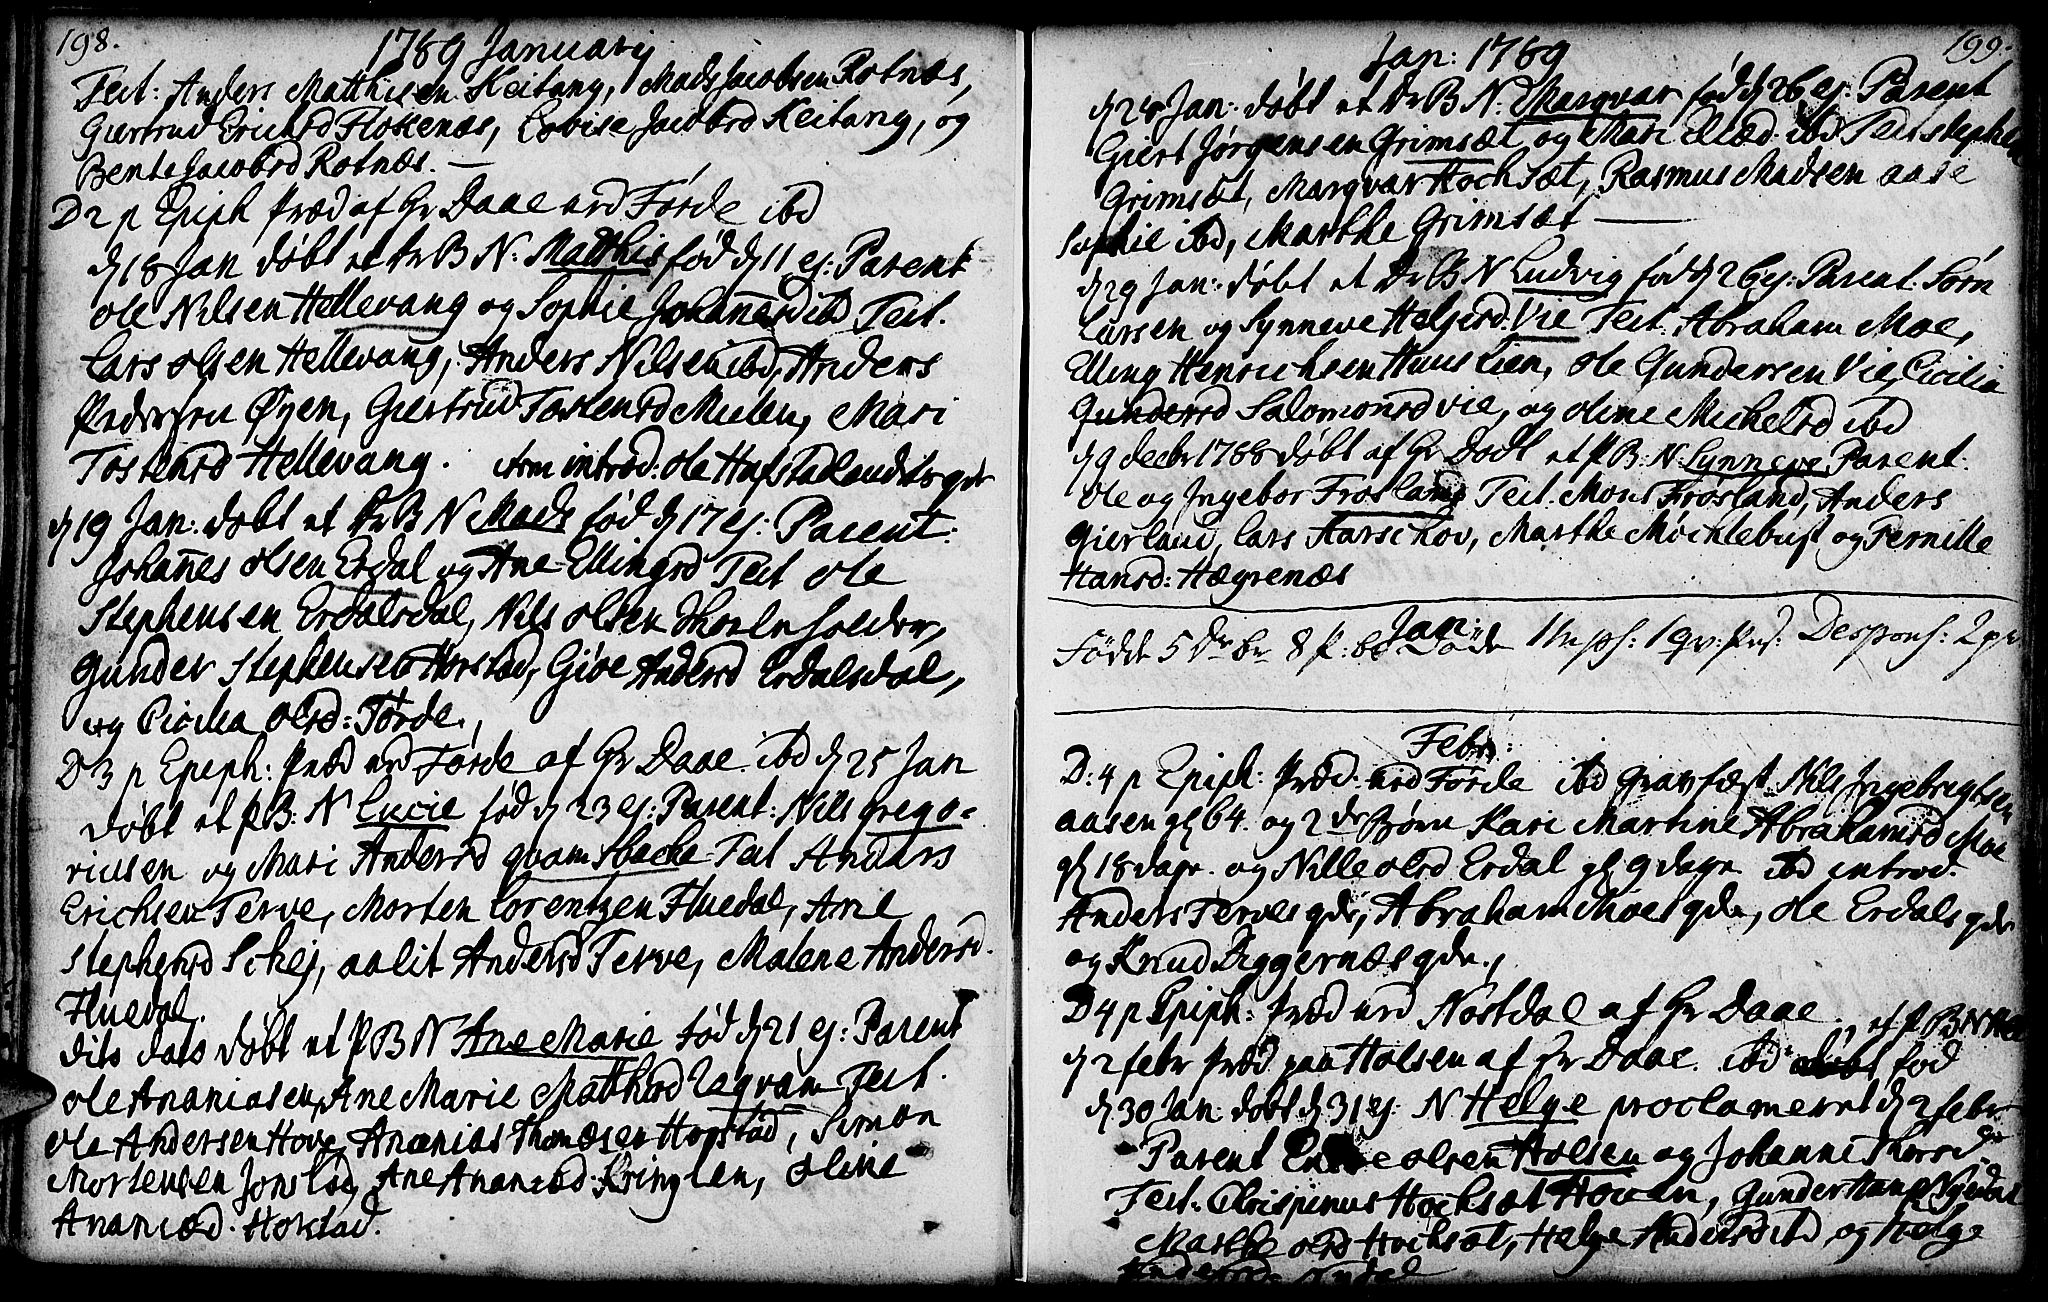 198.
1789 Januarij
Test: Anders Matthisen Keitang, Mads Jacobsen Rotnæs,
Giertrud Erichsd Floxenæs, Lovise Jacobsd Keitang, og
Bente Jacobsd Rotnæs. —
D 2 p Epiph Præd af Hr Daae ved Førde ibd
d 18 Jan døbt et Dr B N: Matthis fød d 11 ej: Parent
Ole Nilsen Hellevang og Sophie Johannesd ibd Test.
Lars Olsen Hellevang, Anders Nilsen ibd, Anders
Pedersen Øyen, Giertrud Tostensd Mulen, Mari
Tostensd Hellevang. introd: Ole Hafstadlands qde
d 19 Jan: døbt et Dr B N Mads fød d 17 ej: Parent:
Johannes Olsen Erdal og Ane Ellingsd Test Ole
Stephensen Erdalsdal, Nils Olsen
Gunder Stephensen Horstad, Giøe Andersd Erdalsdal,
og Cicilia Olsd: Førde.
D 3 p Epiph: Præd ved Førde af Hr Daae. ibd d 25 Jan
døbt et P B: N Lucie fød d 23 ej: Parent: Nils Grego-
riusen og Mari Andersd Qvamsbache Test Anders
Erichsen Terve, Morten Lorentzen Fluedal, Ane
Stephensd Schej, Aalit Andersd Terve, Malene Andersd.
Fluedal.
dito dato døbt et P B N Ane Marie fød d 21 ej: Parent
Ole Ananiasen, Ane Marie Matthisd Test.
Ole Andersen Hove, Ananias Thomæsen Horstad, Simon
Mortensen Jonstad, Ane Ananiæd: Kringlen, Oline
Ananiæd. Horstad.
199.
Jan: 1789
d 28 Jan: døbt et Dr B N: Marqvar fød d 26 ej: Parent
Giert Jørgensen Grimsæt og Mari ibd Test Stephen
Grimsæt, Marqvar Hochsæt, Rasmus Madsen Aase
Sophie ibd, Marthe Grimsæt —
d 29 Jan: døbt et Dr B N Ludvig fød d 26 ej: Parent: Sørn
Larsen og Synneve Heljesd: Vie Test: Abraham Moe,
Elling Henrichsen Huus Lien, Ole Gundersen Vie, Cicilia
Gundersd Salomonsd Vie, og Oline Michelsd ibd
d 9 decbr 1788 døbt af Hr Dodt et P B: N Synneve Parent:
Ole og Ingebor Frøsland Test. Mons Frøsland, Anders
Gierland, Lars Aarschov, Marthe Møchlebust og Pernille
Hansd: Hægrenæs
Jan:
Fødde 5 Dr br 8 P: b Døde 1 1 qv: Pers: Despons: 2 par
Febr:
D: 4 p Epiph: Præd. ved Førde ibd gravfæst Nils Ingebrigtsen
Aasen gl 64. og 2de Børn Kari Martine Abrahamsd Moe
gl 18 dage. og Nille Olsd Erdal gl 9 dage ibd introd.
Anders Terves qde, Abraham Moes qde, Ole Erdals qde
og Knud Diggernæs qde.,
D 4 p Epiph: Præd ved Nøstdal af Hr Daae.
d 2 febr præd paa Holsen af Hr Daae. ibd et P B N fød
d 30 Jan: døbt d 31 ej: N Helge proclameret d 2 febr
Parent Olsen Holsen og Johanne Thorsd
Test: Chrispinus Hochsæt Houen, Gunder
Marthe Olsd Hochsæt, Helge Andersd ibd og Helge